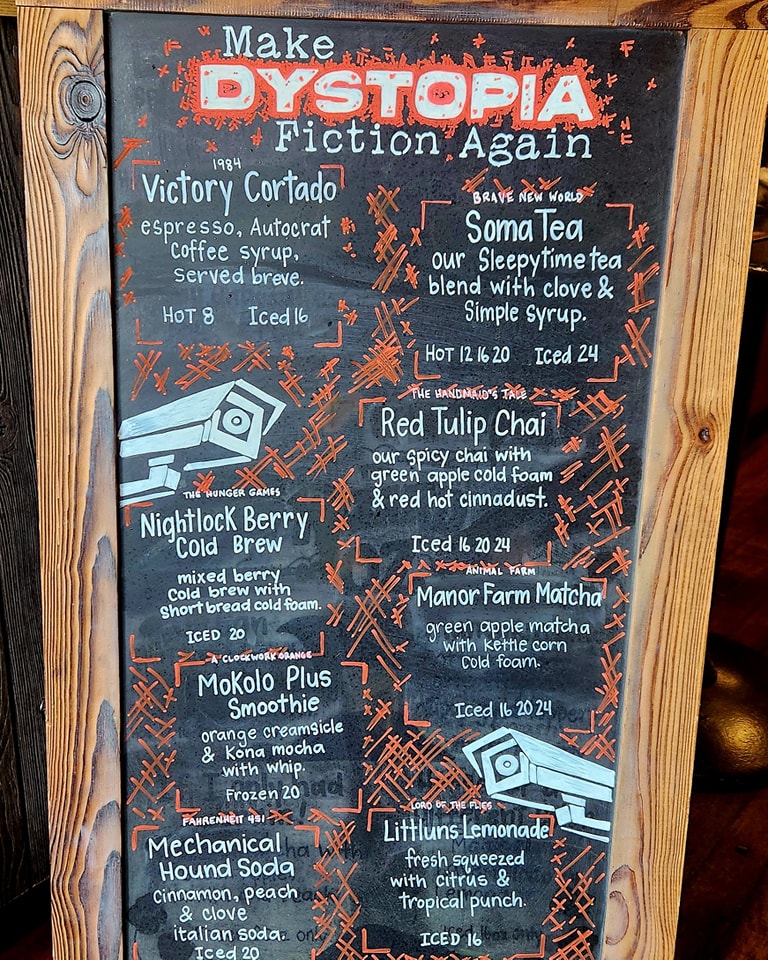 Make
DYSTOPIA
Fiction Again
1984
Victory Cortado
espresso, Autocrat
Coffee syrup,
served breve.
HOT 8 Iced 16
BRAVE NEW WORLD
Soma Tea
our Sleepytime tea
blend with clove &
Simple syrup.
HOT 12 16 20 Iced 24
THE HANDMAID'S TALE
Red Tulip Chai
our spicy chai with
green apple cold foam
& red hot cinnadust.
Iced 16 20 24
THE HUNGER GAMES
Nightlock Berry
Cold Brew
mixed berry
Cold brew with
Short bread cold foam.
ICED 20
ANIMAL FARM
Manor Farm Matcha
green apple matcha
with kettle corn
Cold foam.
Iced 16 20 24
A CLOCKWORK ORANGE
Mokolo Plus
Smoothie
orange creamsicle
& Kona mocha
with whip.
Frozen 20
LORD OF THE FLIES
Littluns Lemonade
fresh squeezed
with citrus &
tropical punch.
ICED 16
FAHRENHEIT 451
Mechanical
Hound Soda
cinnamon, peach
& clove
italian soda.
Iced 20